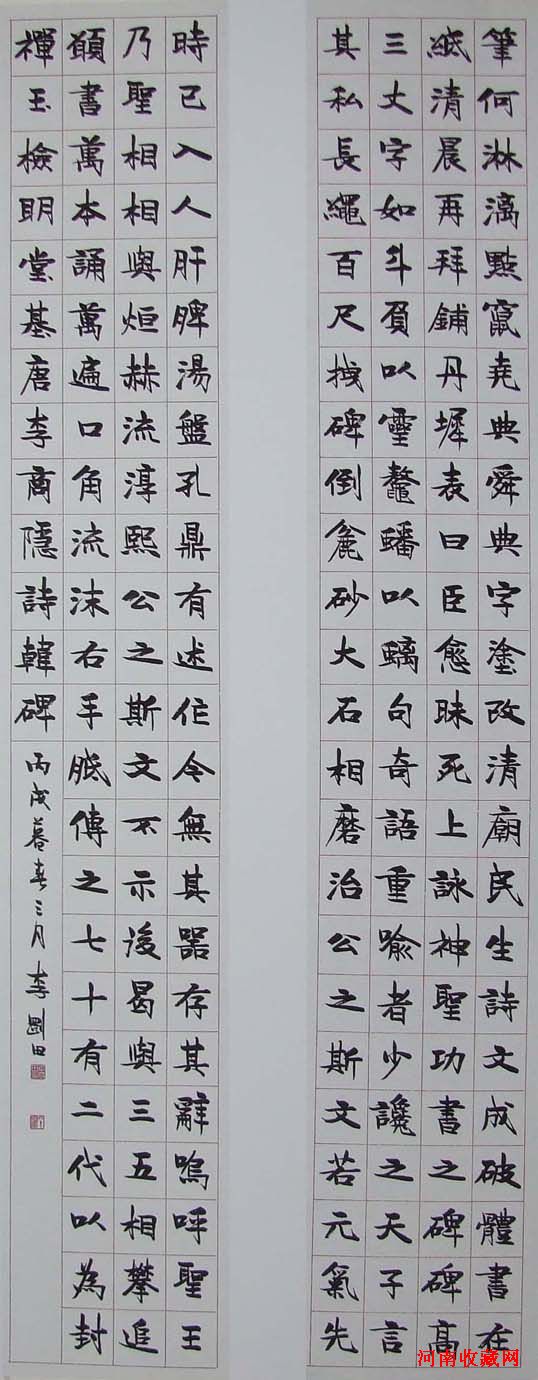 筆何淋漓點竄堯典舜典字塗改清廟民生詩文成破體書在
紙清晨再拜鋪丹墀表曰臣愈昧死上詠神聖功書之碑碑高
三丈字如斗負以靈鼇蟠以螭句奇語重喻者少讒之天子言
其私長繩百尺拽碑倒麄砂大石相磨治公之斯文若元氣先
時已入人肝脾湯盤孔鼎有述作今無其器存其辭嗚呼聖王
乃聖相相與烜赫流淳熙公之斯文不示後曷與三五相攀追
願書萬本誦萬遍口角流沫右手胝傳之七十有二代以為封
禪玉檢明堂基唐李商隱詩韓碑
丙戌暮春三月李剛田
河南收藏网